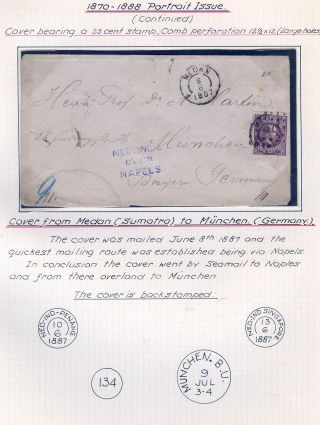 1870-1888 Portrait Issue.
(Continued)
Cover bearing a 25 cent stamp, Comb perforation 12½x12.(large holes)
MEDAN
8
6
1887
Herrn Prof. Dr. Martin
München
Bayern Germany
NED:INDIE
OVER
NAPELS
Cover from Medan (Sumatra) to München. (Germany)
The cover was mailed June 8th 1887 and the
quickest mailing route was established being via Napels.
In conclusion the cover went by Seamail to Naples
and from there overland to Munchen
The cover is backstamped.
NED:IND:PENANG
10
6
1887
134
MUNCHEN. B.U.
9
JUL
3-4
NED:IND:SINGAPORE
13
6
1887